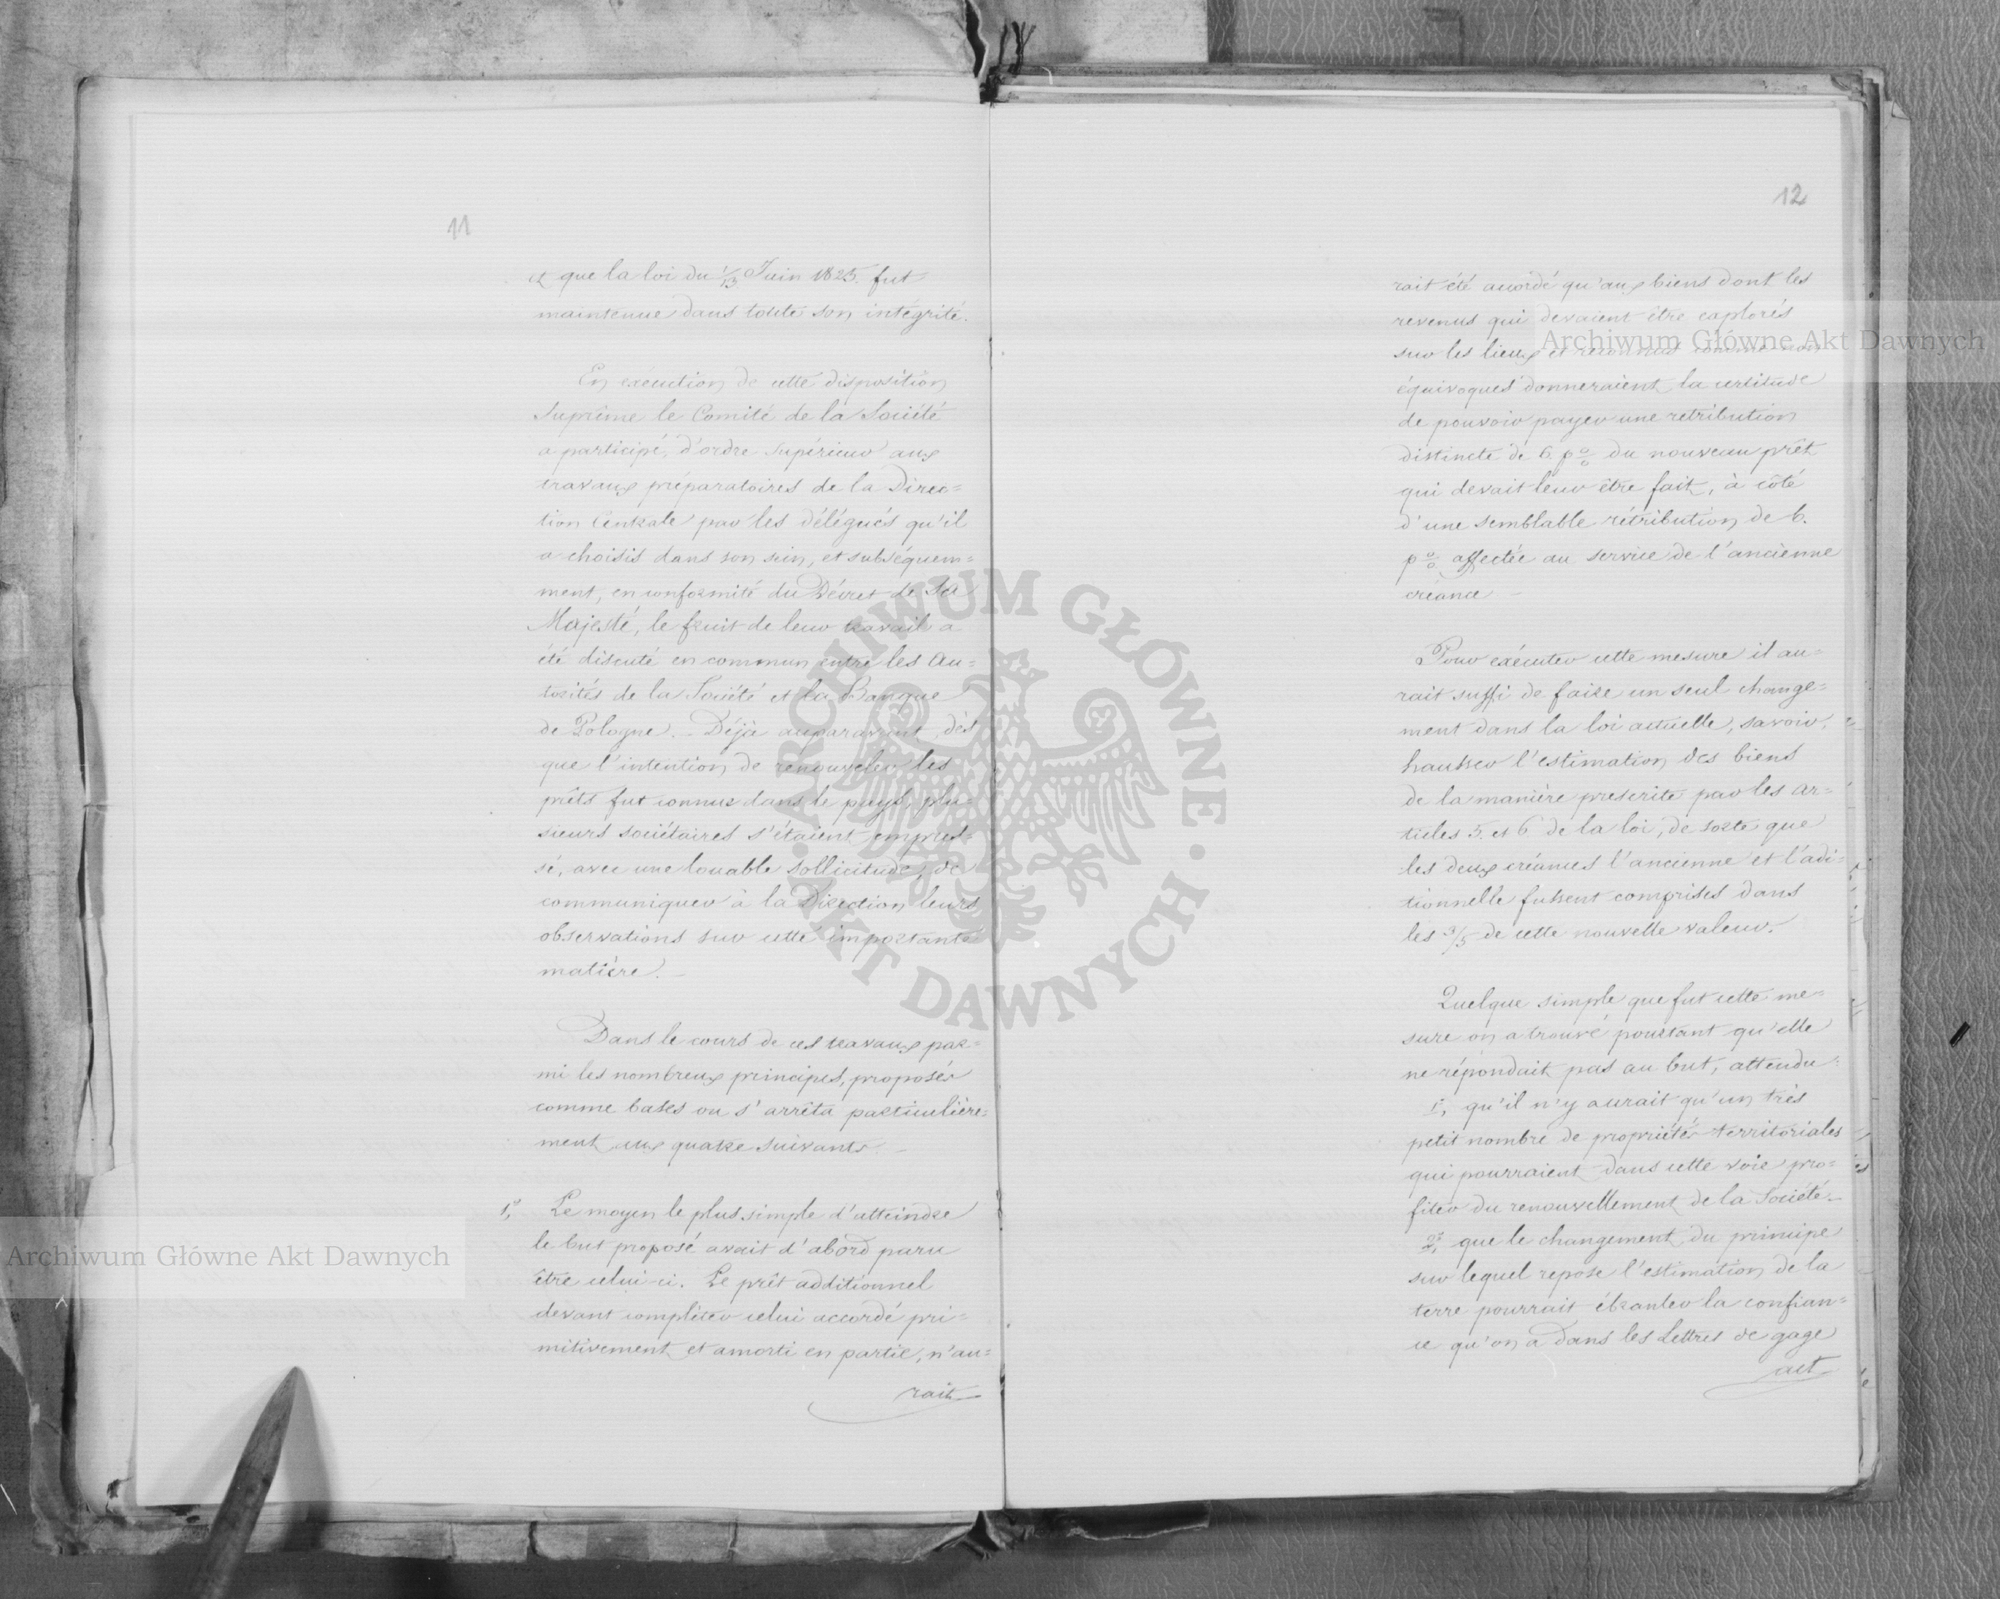 11
et que la loi du 1/13 Juin 1825. fut
maintenue dans toute son intégrité.
En exécution de cette disposition
Suprême le Comité de la Société
a participé, d'ordre supérieur aux
travaux préparatoires de la Direc=
tion Centrale par les délégués qu'il
a choisis dans son sein, et subséquem=
ment, en conformité du Décret de Sa
Majesté, le fruit de leur travail a
été discuté en commun entre les Au=
torités de la Société et la Banque
de Pologne. – Déjà auparavant, dès
que l'intention de renouveler les
prêts fut connue dans le pays, plu=
sieurs sociétaires s'étaient empres=
sé, avec une louable sollicitude, de
communiquer à la Direction leurs
observations sur cette importante
matière. –
Dans le cours de ces travaux par=
mi les nombreux principes, proposés
comme bases on s'arrêta particulière=
ment aux quatre suivants. –
1°, Le moyen le plus simple d'atteindre
le but proposé avait d'abord paru
être celui-ci. Le prêt additionnel
devant compléter celui accordé pri=
mitivement et amorti en partie, n'au=
rait
12
rait été accordé qu'aux biens dont les
revenus qui devaient être explorés
sur les lieux et reconnus comme non
équivoques donneraient la certitude
de pouvoir payer une retribution
distincte de 6. p% du nouveau prêt
qui devait leur être fait, à côté
d'une semblable rétribution de 6.
p% affectée au service de l'ancienne
créance –
Pour exécuter cette mesure il au=
rait suffi de faire un seul change=
ment dans la loi actuelle, savoir,
hausser l'estimation des biens
de la manière prescrite par les ar=
ticles 5. et 6 de la loi, de sorte que
les deux créances l'ancienne et l'adi=
tionnelle fussent comprises dans
les 3/5 de cette nouvelle valeur.
Quelque simple que fut cette me=
sure on a trouvé pourtant qu'elle
ne répondait pas au but, attendu:
1°, qu'il n'y aurait qu'un très
petit nombre de propriétés territoriales
qui pourraient dans cette voie pro=
fiter du renouvellement de la Société. –
2°, que le changement du principe
sur lequel repose l'estimation de la
terre pourrait ébranler la confian=
ce qu'on a dans les Lettres de gage
act
Archiwum Główne Akt Dawnych
Archiwum Główne Akt Dawnych
ARCHIWUM GŁÓWNE · AKT DAWNYCH ·